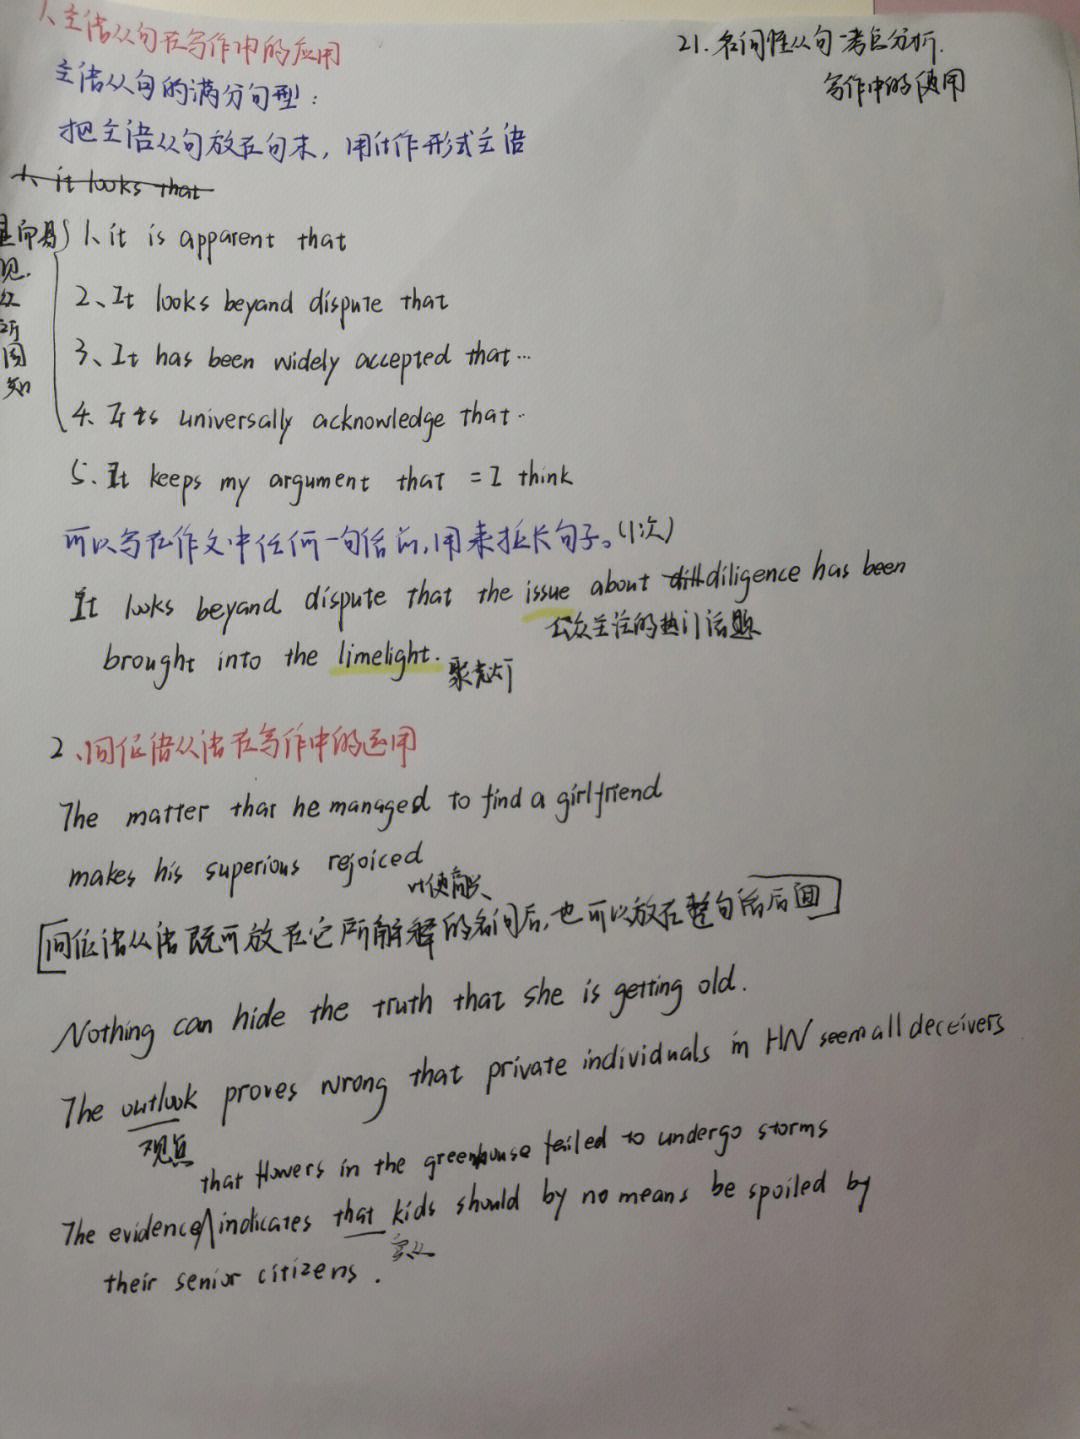 1、主语从句在写作中的应用
21. 名词性从句-考点分析.
写作中的使用
主语从句的满分句型：
把主语从句放在句末，用it作形式主语
1、it looks that
显而易见.众所周知
1、it is apparent that
2、It looks beyand dispute that
3、It has been widely accepted that...
4、It is universally acknowledge that..
5. It keeps my argument that = I think
可以写在作文中任何一句话前,用来拉长句子。(1次)
It looks beyand dispute that the issue about diligence has been
公众关注的热门话题
brought into the limelight.
聚光灯
2、同位语从语在写作中的运用
The matter that he managed to find a girlfriend
makes his superious rejoiced
vt使高兴
[同位语从语既可放在它所解释的名词后,也可以放在整句话后面]
Nothing can hide the truth that she is getting old.
The outlook proves wrong that private individuals in HN seem all deceivers
观点
that flowers in the greenhouse failed to undergo storms
The evidence indicates that kids should by no means be spoiled by
宾从
their senior citizens.